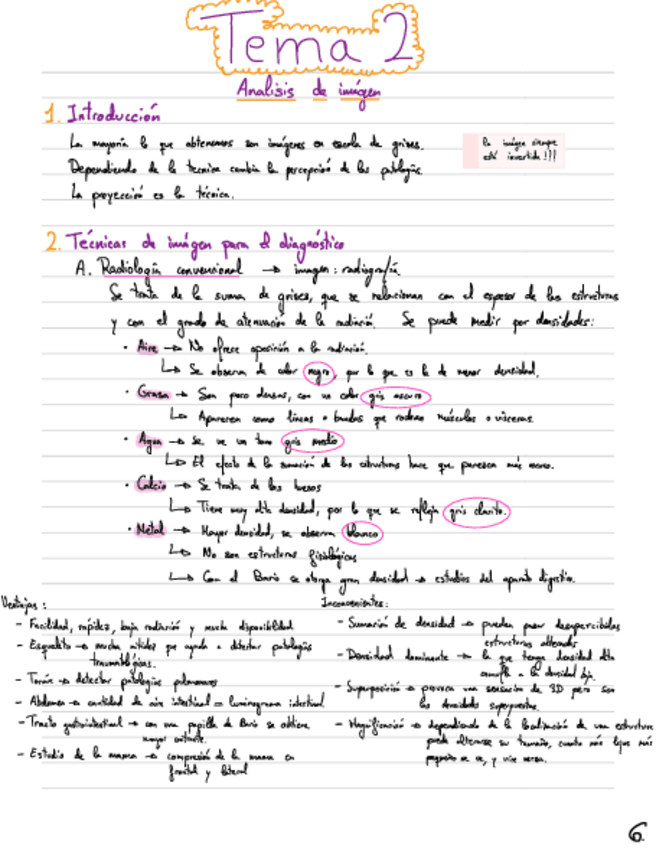 Tema 2
Analisis de imágen
1. Introducción
La mayoria lo que obtenemos son imágenes en escala de grises.
la imágen siempre
está invertida!!!
Dependiendo de la tecnica cambia la percepción de las patologías
La proyección es la técnica.
2. Técnicas de imágen para el diagnóstico
A. Radiología convencional → imagen: radiografía.
Se trata de la suma de grises, que se relacionan con el espesor de las estructuras
y con el grado de atenuación de la radiación. Se puede medir por densidades:
· Aire → No ofrece oposición a la radiación.
↳ Se observa de color negro, por lo que es la de menor densidad.
· Grasa → Son poco densas, con un color gris oscuro
↳ Aparecen como líneas o bandas que rodean músculos o vísceras.
· Agua → Se ve un tono gris medio
↳ El efecto de la sumación de las estructuras hace que parezcan más
· Calcio → Se trata de los huesos
↳ Tiene muy alta densidad, por lo que se refleja gris clarito.
· Metal → Mayor densidad, se observa blanco
↳ No son estructuras fisiológicas
↳ Con el Bario se otorga gran densidad → estudios del aparato digestivo.
Ventajas:
- Facilidad, rapidez, baja radiación y mucha disponibilidad
- Esqueleto → mucha nitidez que ayuda a detectar patologías
traumatológicas.
- Torax → detectar patologías pulmonares
- Abdomen → cantidad de aire intestinal = luminograma intestinal
- Tracto gastrointestinal → con una papilla de Bario se obtiene
mayor contraste.
- Estudio de la mama → compresión de la mama en
frontal y lateral
Inconvenientes:
- Sumación de densidad → pueden pasar desapercibidas
estructuras alteradas
- Densidad dominante → la que tenga densidad alta
a la densidad baja.
- Superposición → provoca una sensación de 3D pero son
las densidades superpuestas.
- Magnificación → dependiendo de la localización de una estructura
puede alterarse su tamaño, cuanto más lejos más
pequeño se ve, y vice versa.
6